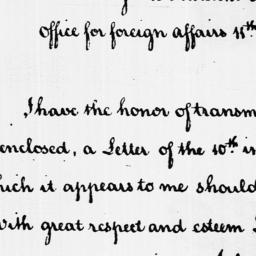 Office for foreign affairs 11th
I have the honor of transm
enclosed, a Letter of the 10th in
hich it appears to me should
with great respect and esteem